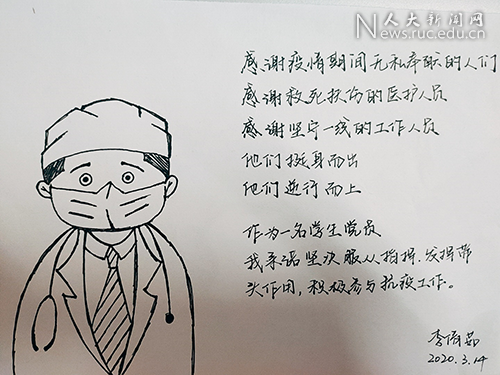 人大新闻网
News.ruc.edu.cn
感谢疫情期间无私奉献的人们
感谢救死扶伤的医护人员
感谢坚守一线的工作人员
他们挺身而出
他们逆行而上
作为一名学生党员
我承诺坚决服从指挥、发挥带
头作用，积极参与抗疫工作。
李倩茹
2020.3.14